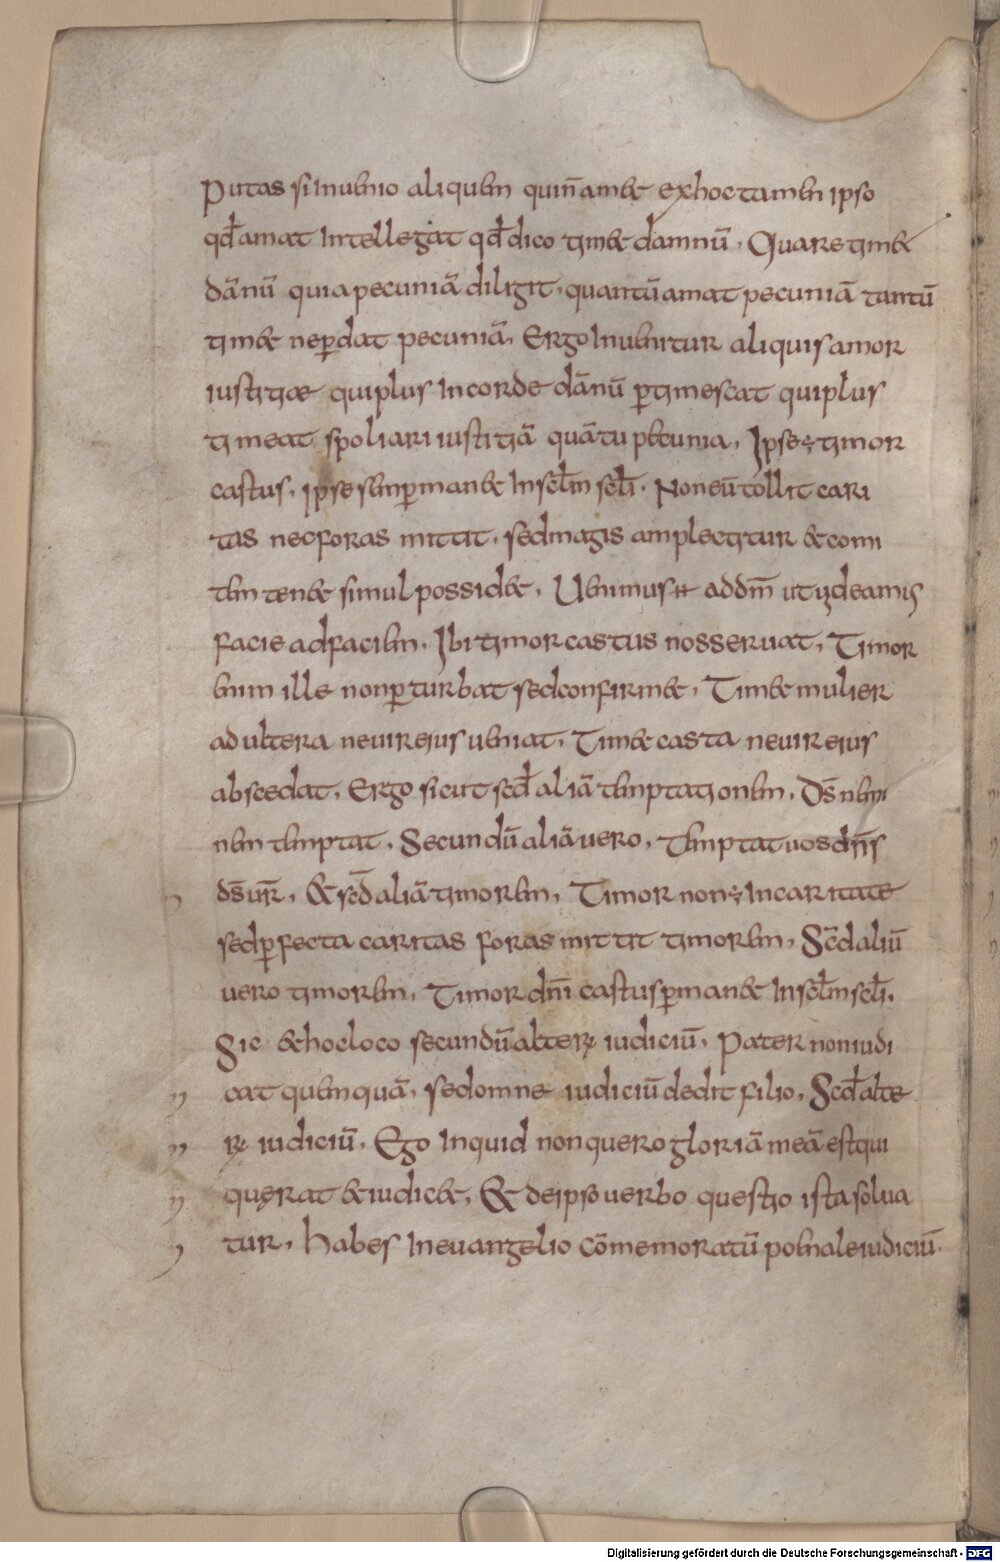 Putas si inuenio aliquem qui n̄ amb& ex hoc tamen ipso
qđ amat intellegat qđ dico tim& damnū. Quare tim&
dānū quia pecuniā diligit. quantū amat pecuniā tantū
tim& ne ꝑdat pecuniā. Ergo inuenitur aliquis amor
iustitiae qui plus in corde dānū ꝑtimescat qui plus
timeat spoliari iustitiā quā tu pecunia. Ipse ÷ timor
castus. ipse semꝑ man& in scłm scłi. Non eū tollit cari
tas nec foras mittit. sed magis amplectitur & comi
tem ten& simul possid&. Uenimus ad dm̄ ut uideamus
facie ad faciem. Ibi timor castus nos seruat. Timor
enim ille non ꝑturbat sed confirm&. Tim& mulier
adultera ne uir eius ueniat. Tim& casta ne uir eius
abscedat. Ergo sicut scđ aliā temptationem. Ds̄ nem
nem temptat. Secundū aliā uero. Temptat uos dn̄s
ds̄ ur̄. & sēd aliā timorem. Timor non ÷ in caritate
sed ꝑfecta caritas foras mittit timorem. Sēd aliū
uero timorem. Timor dn̄i castus ꝑman& in scłm scłi.
Sic & hoc loco secundū alterꝝ iudiciū. Pater non iudi
cat quemquā. sed omne iudiciū dedit filio. Scđ alte
rꝝ iudiciū. Ego inquid non quero gloriā meā est qui
quęrat & iudic&. & de ipso uerbo questio ista solua
tur. Habes in euangelio cōmemoratū poenale iudiciū.
Digitalisierung gefördert durch die Deutsche Forschungsgemeinschaft - DFG